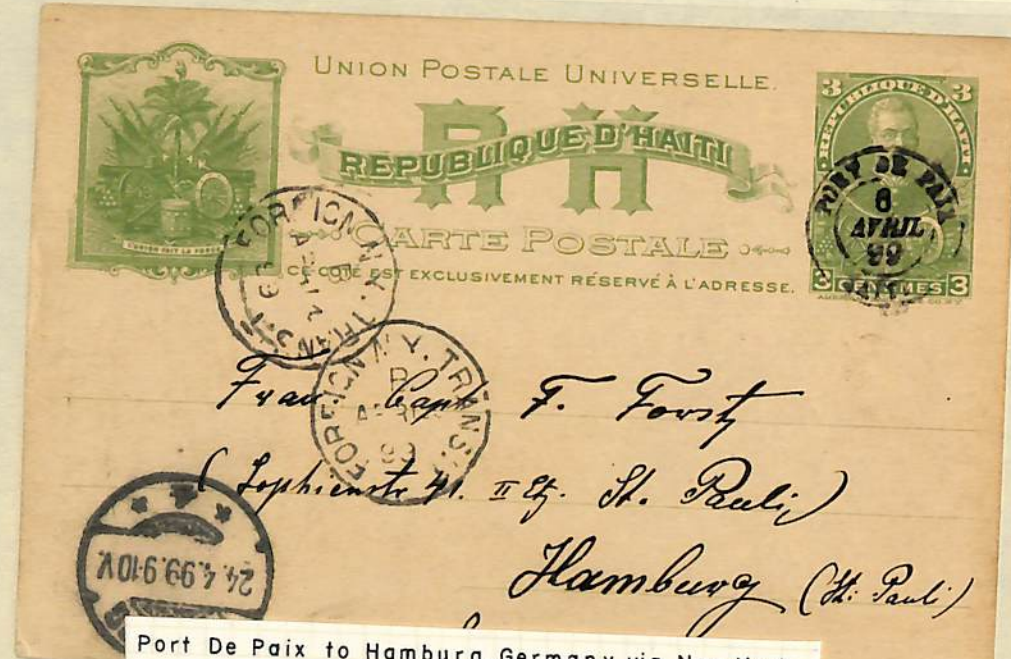 UNION POSTALE UNIVERSELLE.
RH
REPUBLIQUE D'HAITI
CARTE POSTALE
CE COTÉ EST EXCLUSIVEMENT RÉSERVÉ À L'ADRESSE.
L'UNION FAIT LA FORCE
3 3
REPUBLIQUE D'HAITI
3 CENTIMES 3
PORT DE PAIX
8
AVRIL
99
HAITI
FOREIGN N.Y. TRANSIT
FOREIGN N.Y. TRANS.
99
Frau Capt F. Forst
(Sophienstr 41. II Etg. St. Pauli)
Hamburg (St: Pauli)
24.4.99.9-10V.
Port De Paix to Hamburg Germany via